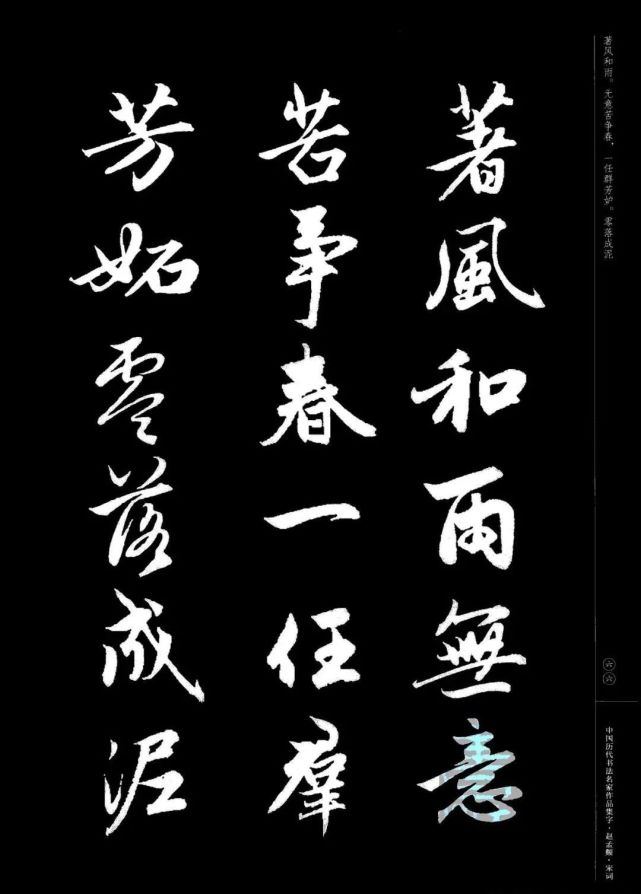 著風和雨無意
苦爭春一任羣
芳妬零落成泥
著风和雨。无意苦争春，一任群芳妒。零落成泥
六六
中国历代书法名家作品集字·赵孟頫·宋词